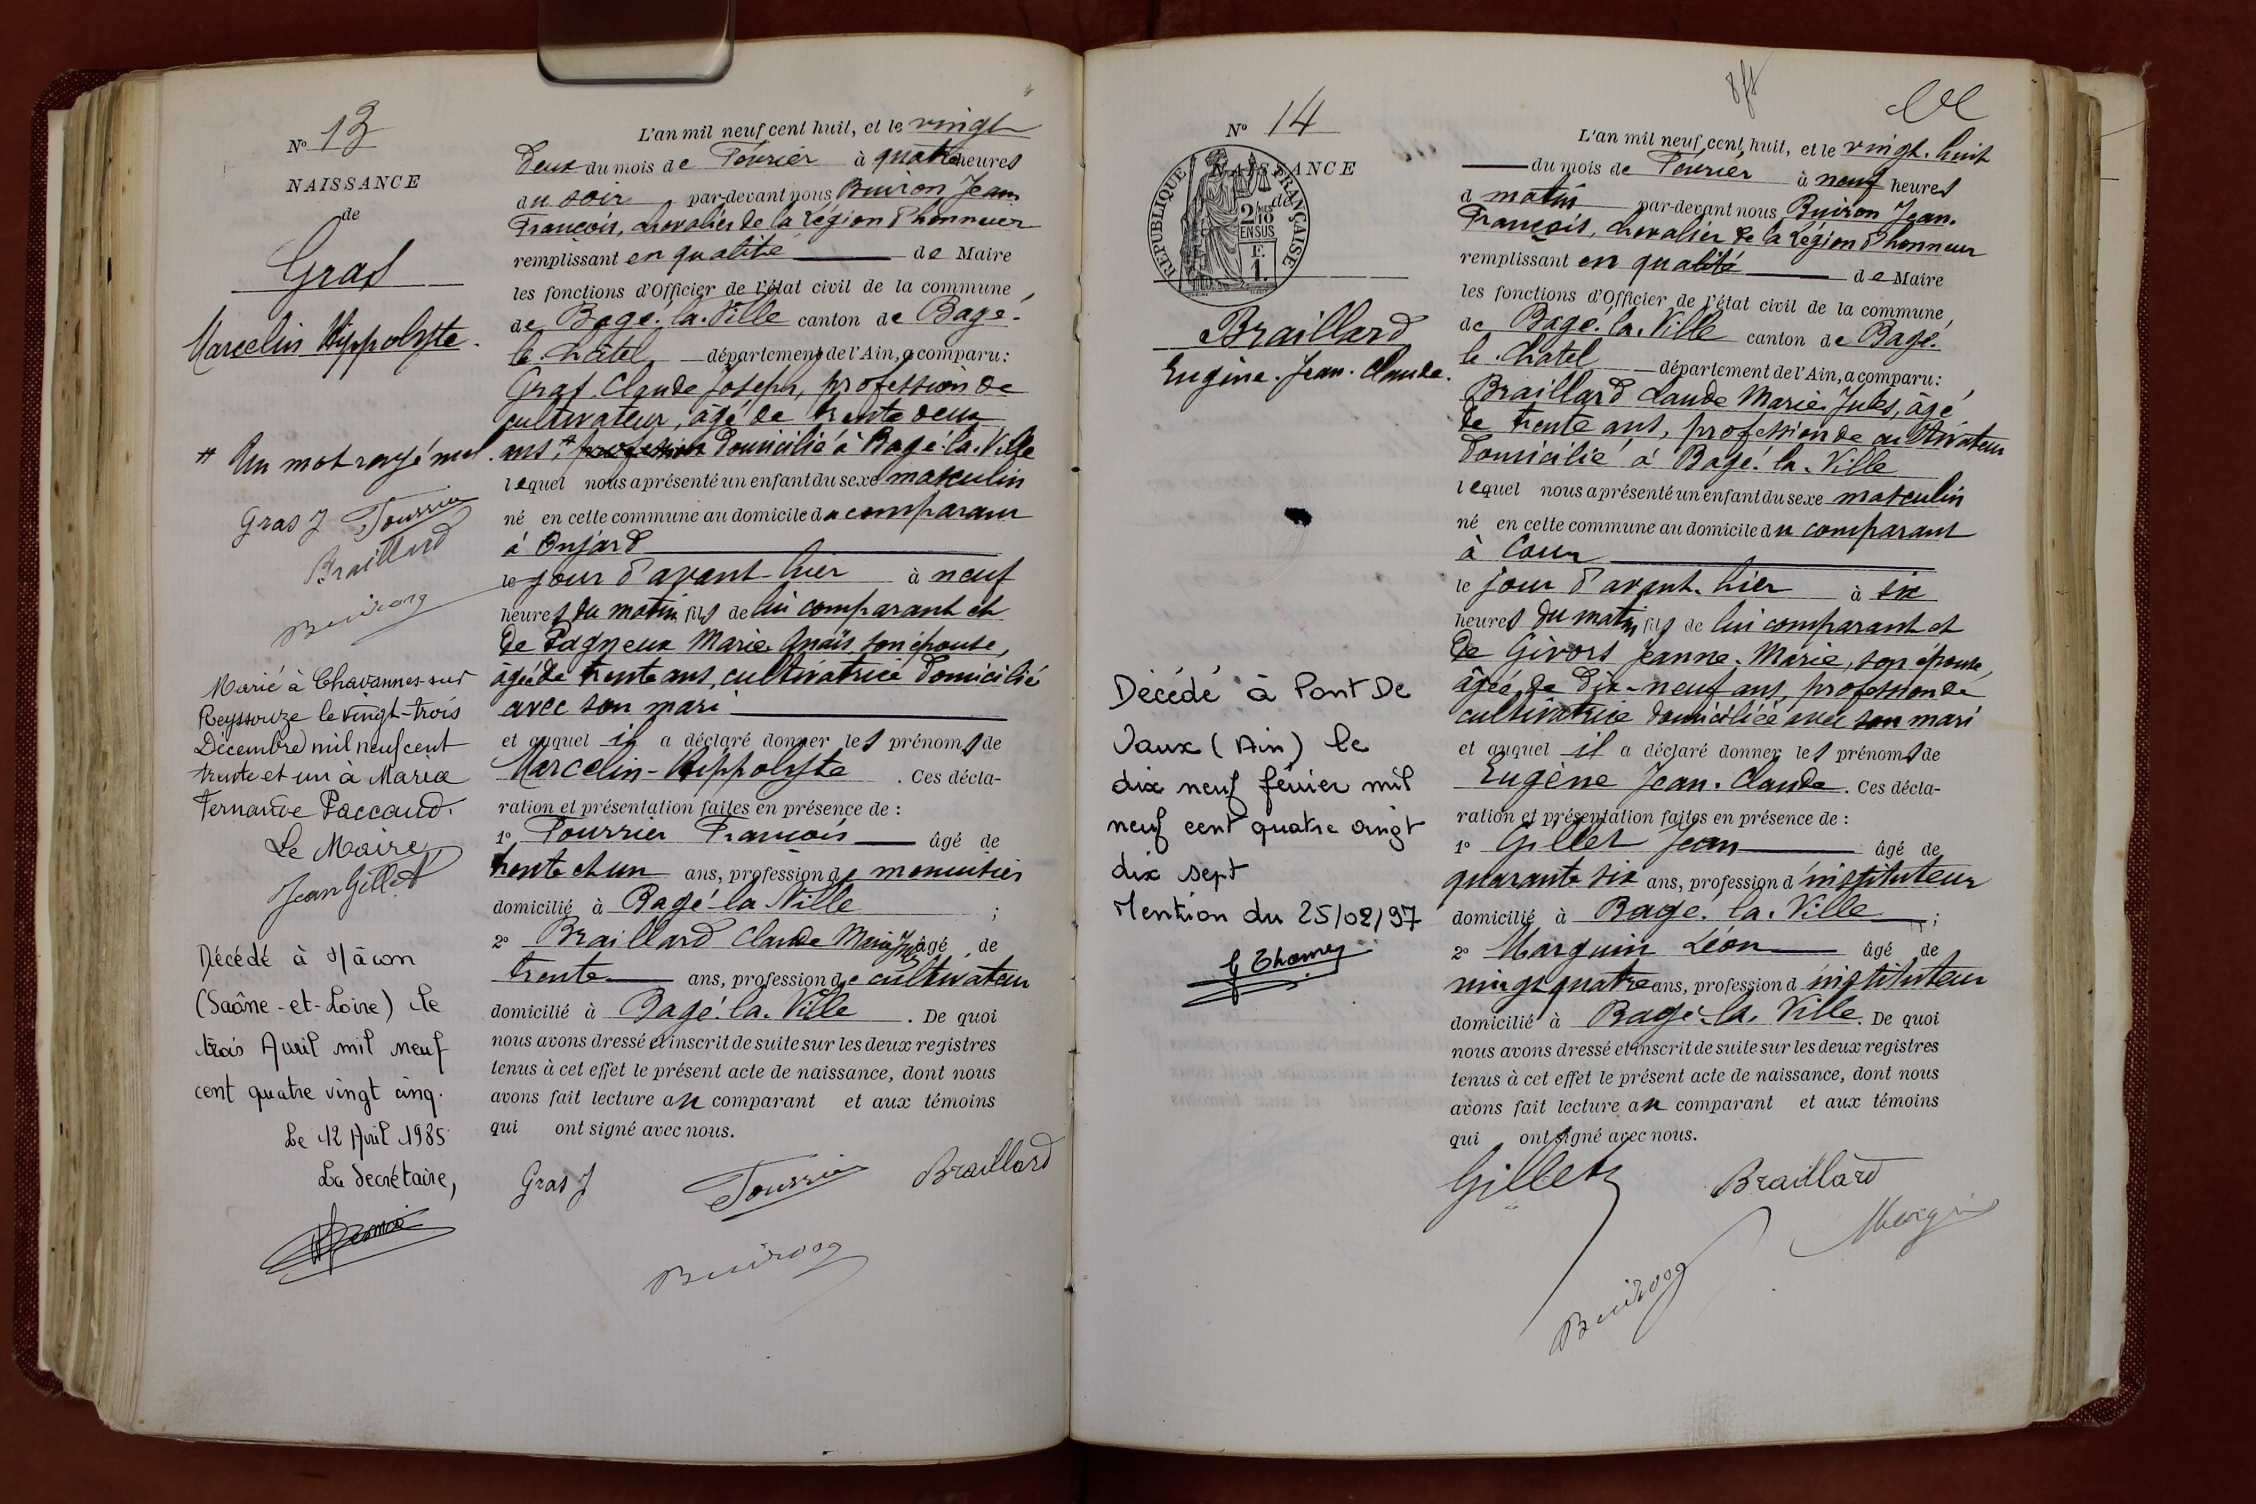 N° 13
NAISSANCE
de
Gras
Marcelin Hippolyte.
# Un mot rayé nul.
Gras J Fourrier
Braillard
Buiron
Marié à Chavannes-sur
Reyssouze le vingt-trois
Décembre mil neuf cent
trente et un à Maria
Fernande Paccaud.
Le Maire,
Jean Gillet
Décédé à Mâcon
(Saône-et-Loire) le
trois Avril mil neuf
cent quatre vingt cinq.
Le 12 Avril 1985
La Secrétaire,
L'an mil neuf cent huit, et le vingt
deux du mois de Février à quatre heures
du soir par-devant nous Buiron Jean
François, chevalier de la Légion d'honneur
remplissant en qualité de Maire
les fonctions d'Officier de l'état civil de la commune
de Bagé-la-Ville canton de Bagé-
le-Châtel département de l'Ain, a comparu:
Gras Claude Joseph, profession de
cultivateur, âgé de trente deux
ans, # profession domicilié à Bagé-la-Ville
lequel nous a présenté un enfant du sexe masculin
né en cette commune au domicile du comparant
à Onjard
le jour d'avant-hier à neuf
heures du matin fils de lui comparant et
de Pagneux Marie Anaïs son épouse,
âgée de trente ans, cultivatrice domicilié
avec son mari
et auquel il a déclaré donner les prénoms de
Marcelin-Hippolyte . Ces décla-
ration et présentation faites en présence de :
1° Fourrier François âgé de
trente et un ans, profession de menuisier
domicilié à Bagé-la Ville ;
2° Braillard Claude Marie Jules âgé de
trente ans, profession de cultivateur
domicilié à Bagé-la-Ville . De quoi
nous avons dressé et inscrit de suite sur les deux registres
tenus à cet effet le présent acte de naissance, dont nous
avons fait lecture au comparant et aux témoins
qui ont signé avec nous.
Gras J Fourrier Braillard
Buiron
N° 14
NAISSANCE
de
RÉPUBLIQUE FRANÇAISE
2/10
EN SUS
F.
1.
Braillard
Eugène. Jean. Claude.
Décédé à Pont De
Vaux (Ain) le
dix neuf février mil
neuf cent quatre vingt
dix sept
Mention du 25/02/97
L'an mil neuf cent huit, et le vingt-huit
du mois de Février à neuf heures
d matin par-devant nous Buiron Jean-
François, chevalier de la Légion d'honneur
remplissant en qualité de Maire
les fonctions d'Officier de l'état civil de la commune
de Bagé-la-Ville canton de Bagé-
le-Châtel département de l'Ain, a comparu:
Braillard Claude Marie Jules, âgé
de trente ans, profession de cultivateur
domicilié à Bagé-la-Ville
lequel nous a présenté un enfant du sexe masculin
né en cette commune au domicile du comparant
à Cour
le jour d'avant-hier à six
heures du matin fils de lui comparant et
de Givors Jeanne-Marie, son épouse,
âgée de dix-neuf ans, profession de
cultivatrice domiciliée avec son mari
et auquel il a déclaré donner les prénoms de
Eugène Jean-Claude . Ces décla-
ration et présentation faites en présence de :
1° Gillet Jean âgé de
quarante six ans, profession d'instituteur
domicilié à Bagé-la-Ville ;
2° Marguin Léon âgé de
vingt quatre ans, profession d'instituteur
domicilié à Bagé-la-Ville. De quoi
nous avons dressé et inscrit de suite sur les deux registres
tenus à cet effet le présent acte de naissance, dont nous
avons fait lecture au comparant et aux témoins
qui ont signé avec nous.
Gillet Braillard
Marguin
Buiron